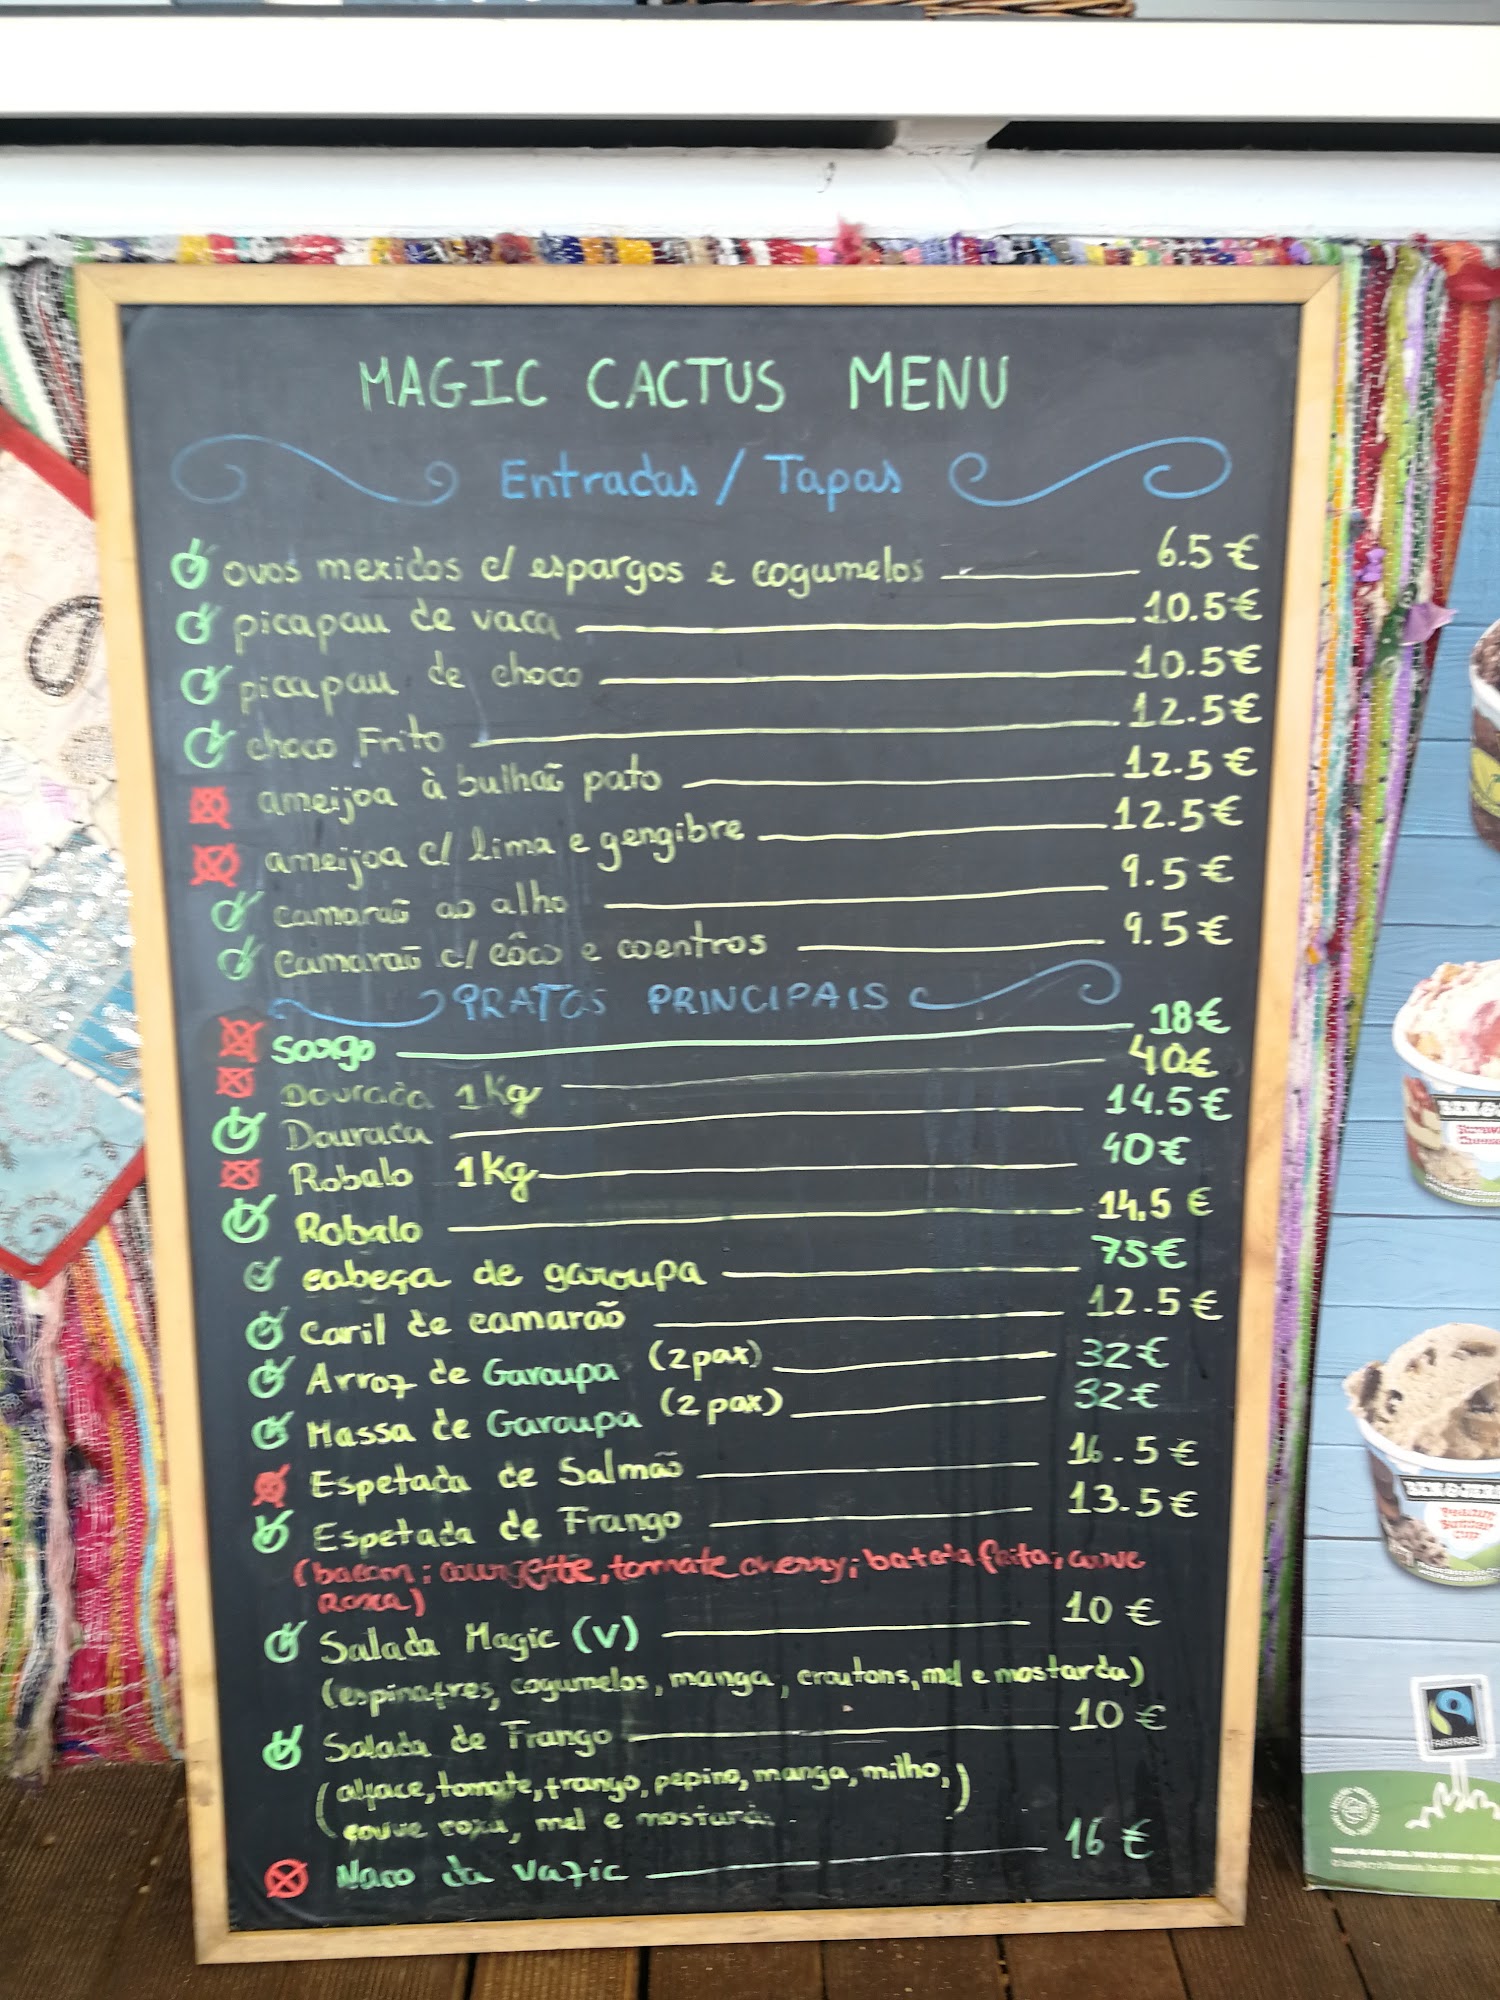 MAGIC CACTUS MENU
Entradas / Tapas
ovos mexidos c/ espargos e cogumelos 6.5 €
picapau de vaca 10.5 €
picapau de choco 10.5 €
choco Frito 12.5 €
ameijoa à bulhaõ pato 12.5 €
ameijoa c/ lima e gengibre 12.5 €
camaraõ ao alho 9.5 €
camaraõ c/ côco e coentros 9.5 €
PRATOS PRINCIPAIS
Sargo 18 €
Dourada 1Kg 40 €
Dourada 14.5 €
Robalo 1Kg 40 €
Robalo 14,5 €
cabeça de garoupa 75 €
Caril de camarão 12.5 €
Arroz de Garoupa (2 pax) 32 €
Massa de Garoupa (2 pax) 32 €
Espetada de Salmão 16.5 €
Espetada de Frango 13.5 €
(bacon; courgette, tomate cherry; batata frita; couve
Roxa)
Salada Magic (V) 10 €
(espinafres, cogumelos, manga, croutons, mel e mostarda)
Salada de Frango 10 €
(alface, tomate, frango, pepino, manga, milho,)
couve roxa, mel e mostarda.
Naco da Vazic 16 €
BEN & JER
Peanut
Butter
Cup
FAIRTRADE